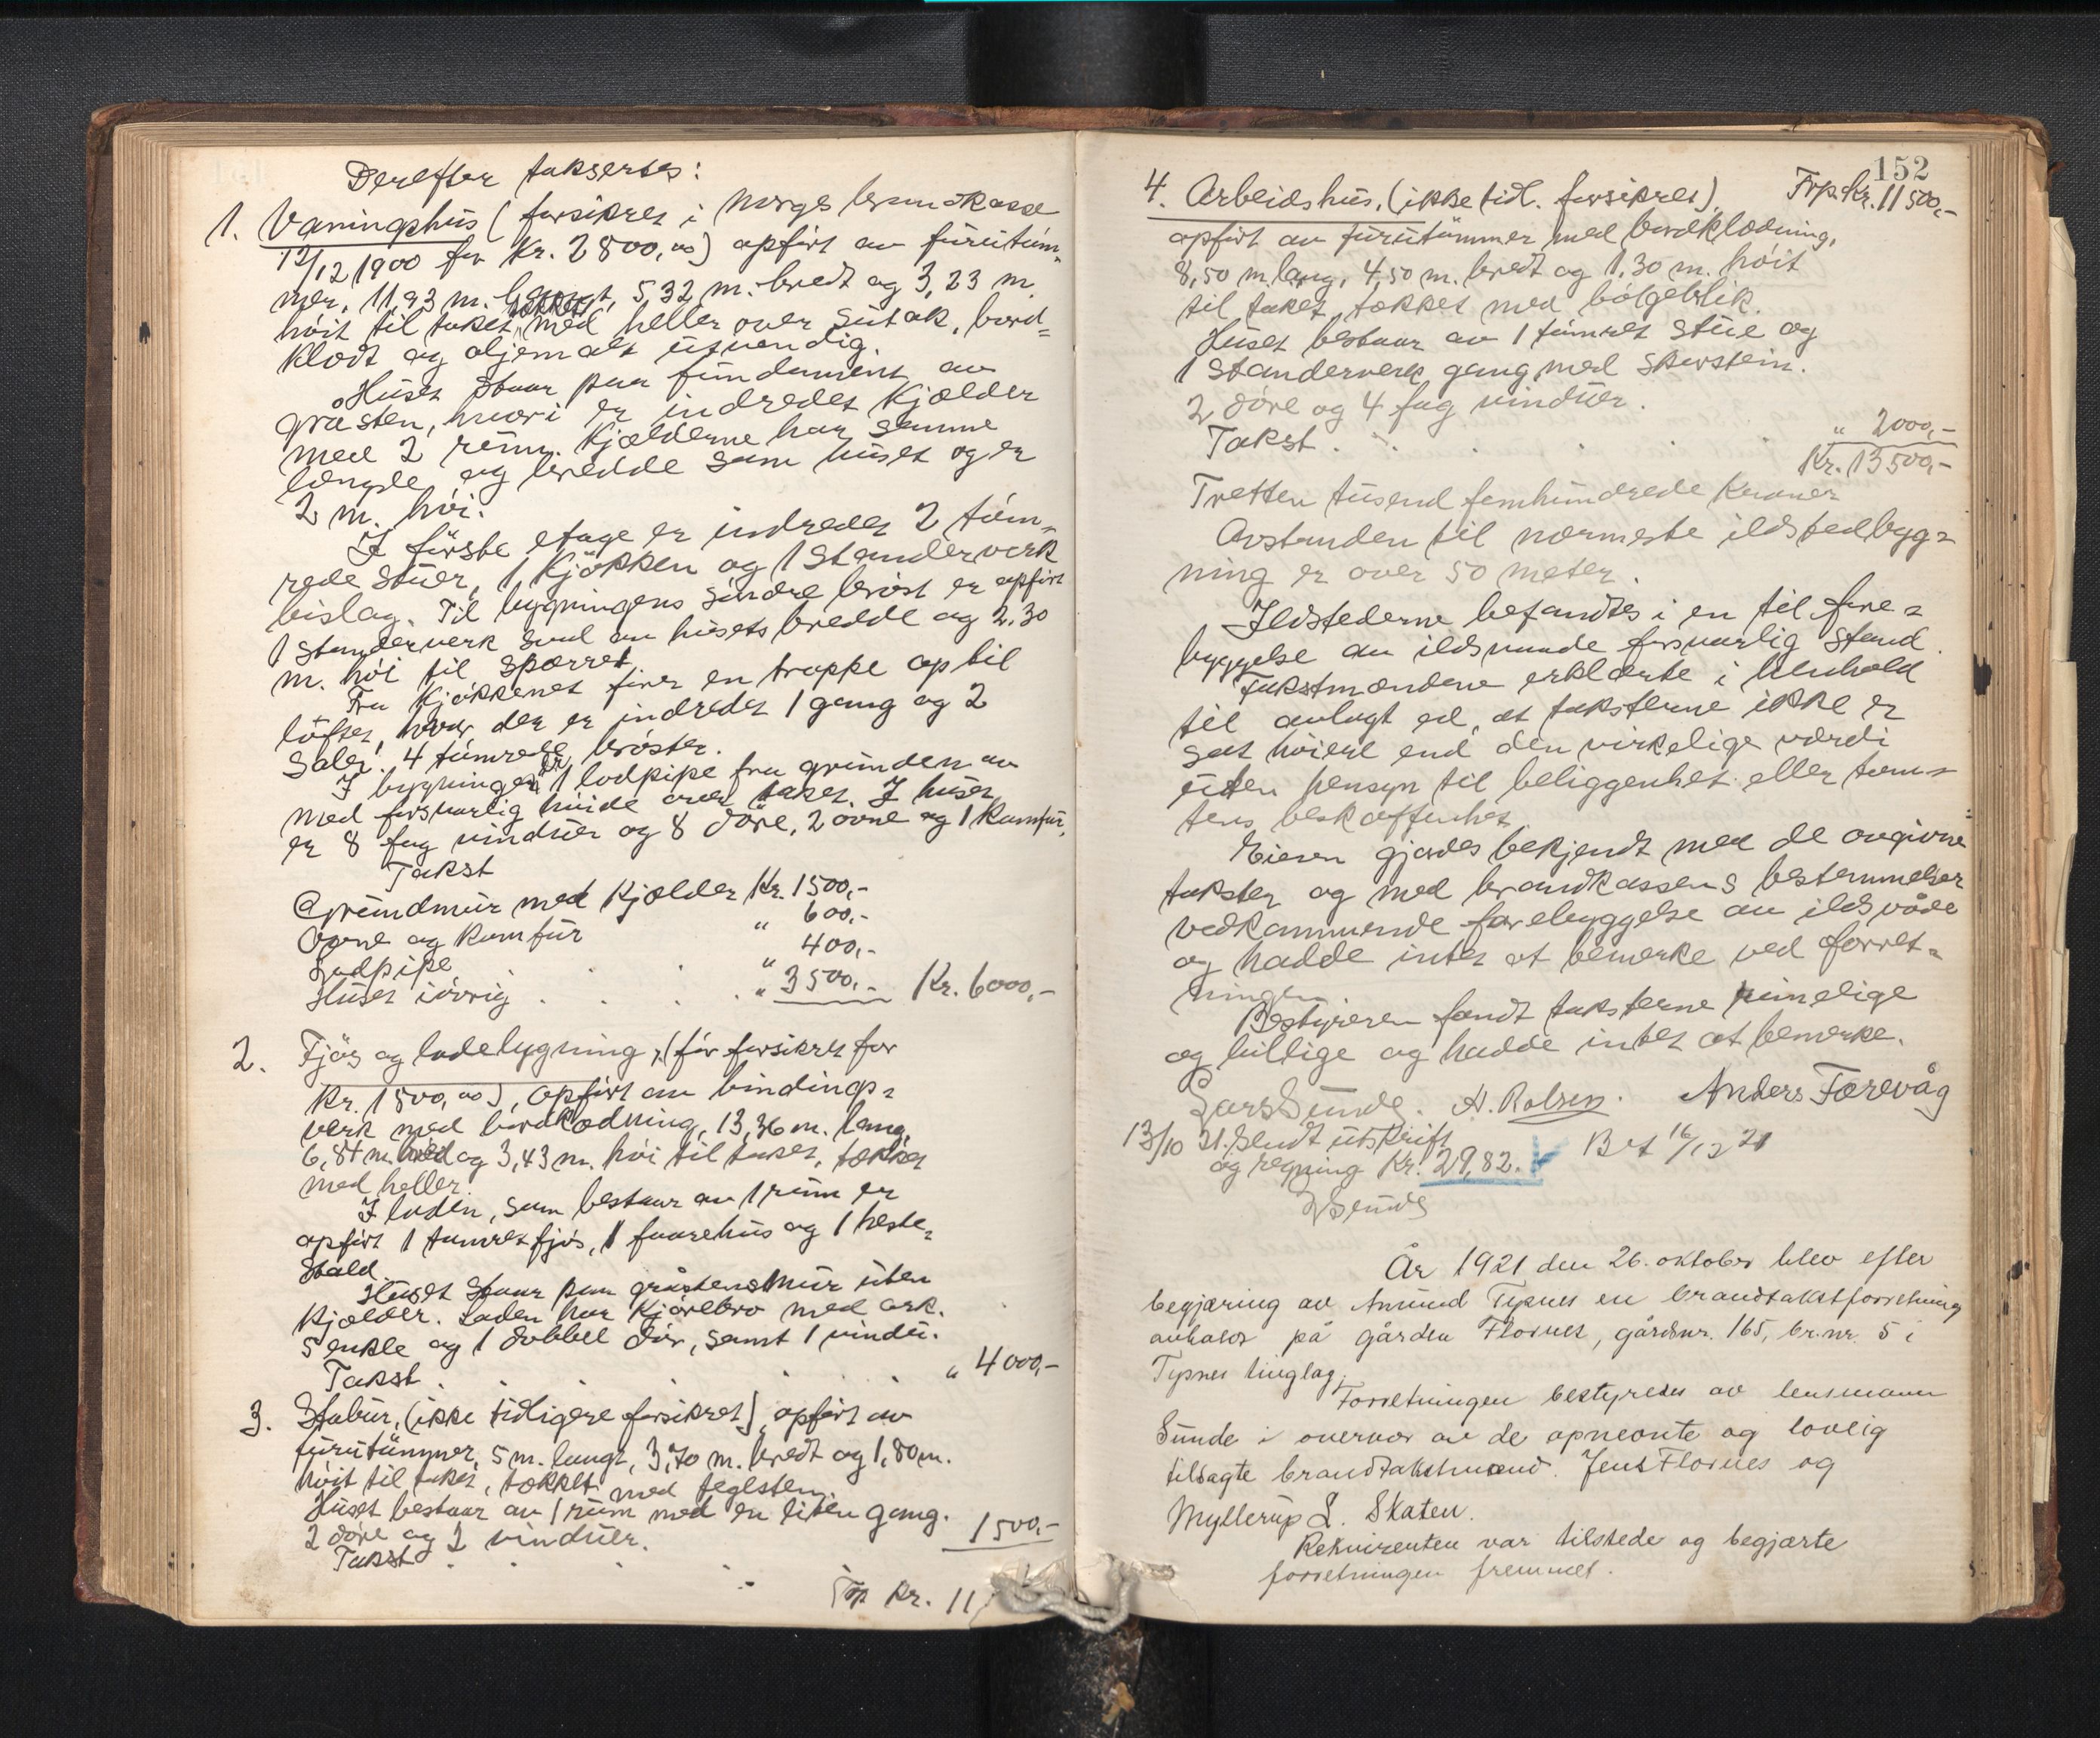 Derefter taksertes:
1. Vaaningshus (forsikret i Norges brandkasse
12/12 1900 for Kr. 2800,00) opført av furutøm-
mer, 11,93 m. langt, 5,32 m. bredt og 3,23 m.
høit til taket, tækket med heller over sutak, bord-
klædt og oljemalt utvendig.
Huset staar paa fundament av
gråsten, hvori er indredet kjælder
med 2 rum. Kjælderne har samme
længde og bredde som huset og er
2 m. høi.
I første etage er indredet 2 tøm-
rede stuer, 1 kjøkken og 1 standerverk
bislag. Til bygningens søndre brøst er opført
1 standerverk sval av husets bredde og 2,30
m. høi til sparret.
Fra kjøkkenet fører en trappe op til
løftet, hvor der er indredet 1 gang og 2
saler. 4 tømrede brøster.
I bygningen er 1 lodpipe fra grunden av
med forsvarlig høide over taket. I huset
er 8 fag vinduer og 8 døre, 2 ovne og 1 komfur.
Takst
Grundmur med kjælder Kr. 1500,-
Ovne og komfur " 600,-
Lodpipe " 400,-
Huset iøvrig . . . . " 3500,- Kr. 6000,-
2. Fjøs og ladebygning, (før forsikret for
Kr. 1500,00), opført av bindings-
verk med bordklædning, 13,36 m. lang,
6,84 m. bred og 3,43 m. høi til taket, tækket
med heller.
I laden, som bestaar av 1 rum er
opført 1 tømret fjøs, 1 faarehus og 1 heste-
stald.
Huset staar paa gråstensmur uten
kjælder. Laden har kjørebro med ark.
5 enkle og 1 dobbel dør, samt 1 vindu.
Takst . . . . . . " 4000,-
3. Stabur, (ikke tidligere forsikret) opført av
furutømmer, 5 m. langt, 3,70 m. bredt og 1,80 m.
høit til taket, tækket med teglsten.
Huset bestaar av 1 rum med en liten gang.
2 døre og 2 vinduer.
Takst . . . . 1500,-
Trp Kr. 11
152
Trp. Kr. 11500,-
4. Arbeidshus, (ikke tidl. forsikret),
opført av furutømmer med bordklædning,
8,50 m. lang, 4,50 m. bredt og 1,30 m. høit
til taket, tækket med bølgeblik.
Huset bestaar av 1 tømret stue og
1 standerverk gang med skorstein.
2 døre og 4 fag vinduer.
Takst . . . . . " 2000,-
Kr. 13500,-
Tretten tusend femhundrede Kroner
Avstanden til nærmeste ildstedbyg-
ning er over 50 meter.
Ildstederne befandtes i en til fore-
byggelse av ildsvaade forsvarlig stand.
Takstmændene erklærte i henhold
til avlagt ed, at taksterne ikke er
sat høiere end den virkelige værdi
uten hensyn til beliggenhet eller tom-
tens beskaffenhet.
Eieren gjordes bekjendt med de avgivne
takster og med brandkassens bestemmelser
vedkommende forebyggelse av ildsvåde
og hadde intet at bemerke ved forret-
ningen.
Bestyreren fandt taksterne rimelige
og billige og hadde intet at bemerke.
Lars Sunde. A. Rolsen. Anders Færevåg
13/10 21. Sendt utskrift
og regning Kr. 29,82. Bet 16/12 21
LSunde
År 1921 den 26. oktober blev efter
begjæring av Amund Typnes en brandtakstforretning
avholdt på gården Flornes, gårdsnr. 165, br.nr. 5 i
Tysnes tinglag.
Forretningen bestyredes av lensmann
Sunde i overvær av de opnevnte og lovlig
tilsagte brandtakstmænd. Jens Flornes og
Myllerup L. Skaten.
Rekvirenten var tilstede og begjærte
forretningen fremmet.